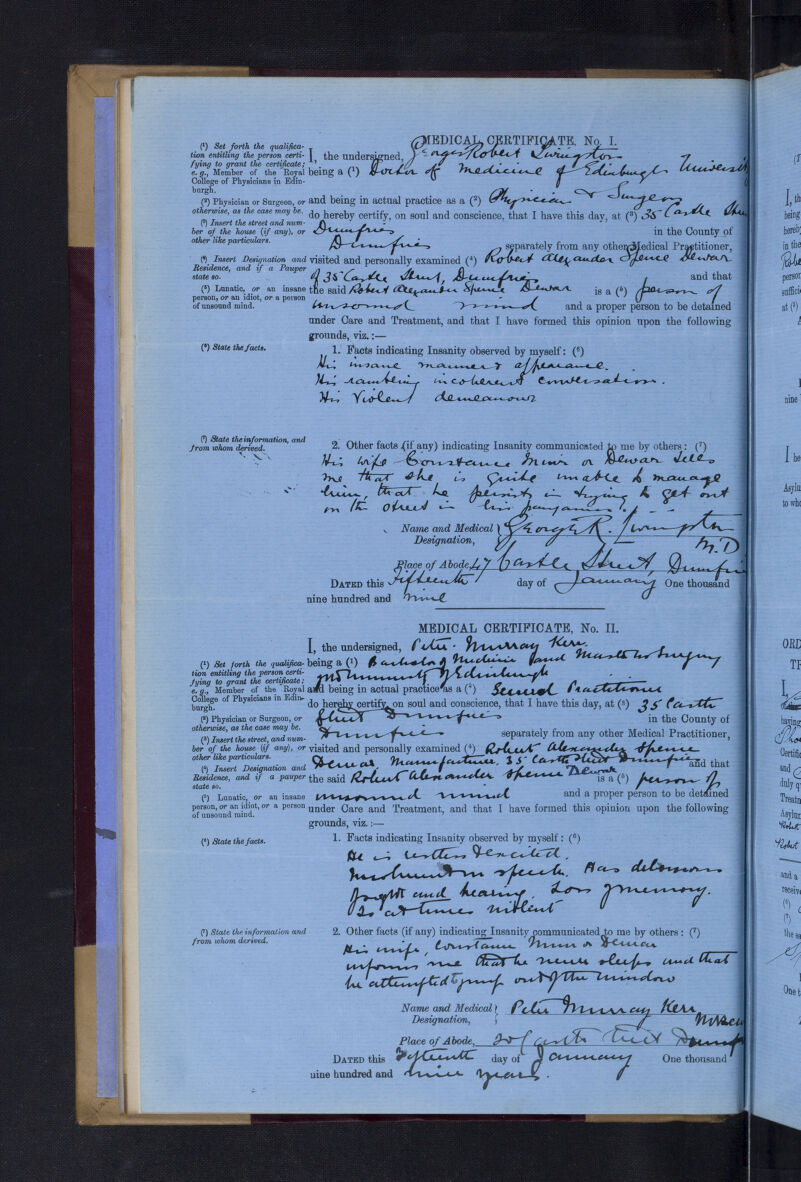 MEDICAL CERTIFICATE, No. I.
(¹) Set forth the qualifica-
tion entitling the person certi-
fying to grant the certificate;
e. g., Member of the Royal
College of Physicians in Edin-
burgh.
(²) Physician or Surgeon, or
otherwise, as the case may be.
(³) Insert the street and num-
ber of the house (if any), or
other like particulars.
(⁴) Insert Designation and
Residence, and if a Pauper
state so.
(⁵) Lunatic, or an insane
person, or an idiot, or a person
of unsound mind.
I, the undersigned, George Robert Livingston
being a (¹) Doctor of Medicine of Edinburgh University
and being in actual practice as a (²) Physician & Surgeon
do hereby certify, on soul and conscience, that I have this day, at (³) 35 Castle
Dumfries in the County of
Dumfries separately from any other Medical Practitioner,
visited and personally examined (⁴) Robert Alexander Spence Dewar
of 35 Castle Street, Dumfries and that
the said Robert Alexander Spence Dewar is a (⁵) person of
unsound mind and a proper person to be detained
under Care and Treatment, and that I have formed this opinion upon the following
grounds, viz.:—
(⁶) State the facts.
1. Facts indicating Insanity observed by myself: (⁶)
His insane manner & appearance.
His rambling incoherent conversation.
His violent demeanour
(⁷) State the information, and
from whom derived.
2. Other facts (if any) indicating Insanity communicated to me by others: (⁷)
His wife Constance or Dewar tells
me that she is quite unable to manage
him, that he persists in trying to get out
on the street in his pyjamas.
Name and Medical Designation, George R. Livingston
M.D
Place of Abode, 47 Castle Street, Dumfries
DATED this Fifteenth day of January One thousand
nine hundred and nine
MEDICAL CERTIFICATE, No. II.
(¹) Set forth the qualifica-
tion entitling the person certi-
fying to grant the certificate;
e. g., Member of the Royal
College of Physicians in Edin-
burgh.
(²) Physician or Surgeon, or
otherwise, as the case may be.
(³) Insert the street, and num-
ber of the house (if any), or
other like particulars.
(⁴) Insert Designation and
Residence, and if a pauper
state so.
(⁵) Lunatic, or an insane
person, or an idiot, or a person
of unsound mind.
I, the undersigned, Peter Murray Kerr
being a (¹) Bachelor of Medicine and Master in Surgery
University of Edinburgh
and being in actual practice as a (²) General Practitioner
do hereby certify, on soul and conscience, that I have this day, at (³) 35 Castle
Street Dumfries in the County of
Dumfries separately from any other Medical Practitioner,
visited and personally examined (⁴) Robert Alexander Spence
Dewar, Manufacturer, 35 Castle Street Dumfries and that
the said Robert Alexander Spence Dewar is a (⁵) person of
unsound mind and a proper person to be detained
under Care and Treatment, and that I have formed this opinion upon the following
grounds, viz.:—
(⁶) State the facts.
1. Facts indicating Insanity observed by myself: (⁶)
He is restless & excited.
Incoherent in speech. Has delusions
of sight and hearing. Loss of memory.
Is at times violent
(⁷) State the information and
from whom derived.
2. Other facts (if any) indicating Insanity communicated to me by others: (⁷)
His wife, Constance or Dewar
informs me that he never sleeps and that
he attempted to jump out of the window
Name and Medical Designation, Peter Murray Kerr
Place of Abode, Castle Street Dumfries
DATED this Fifteenth day of January One thousand
nine hundred and nine years.